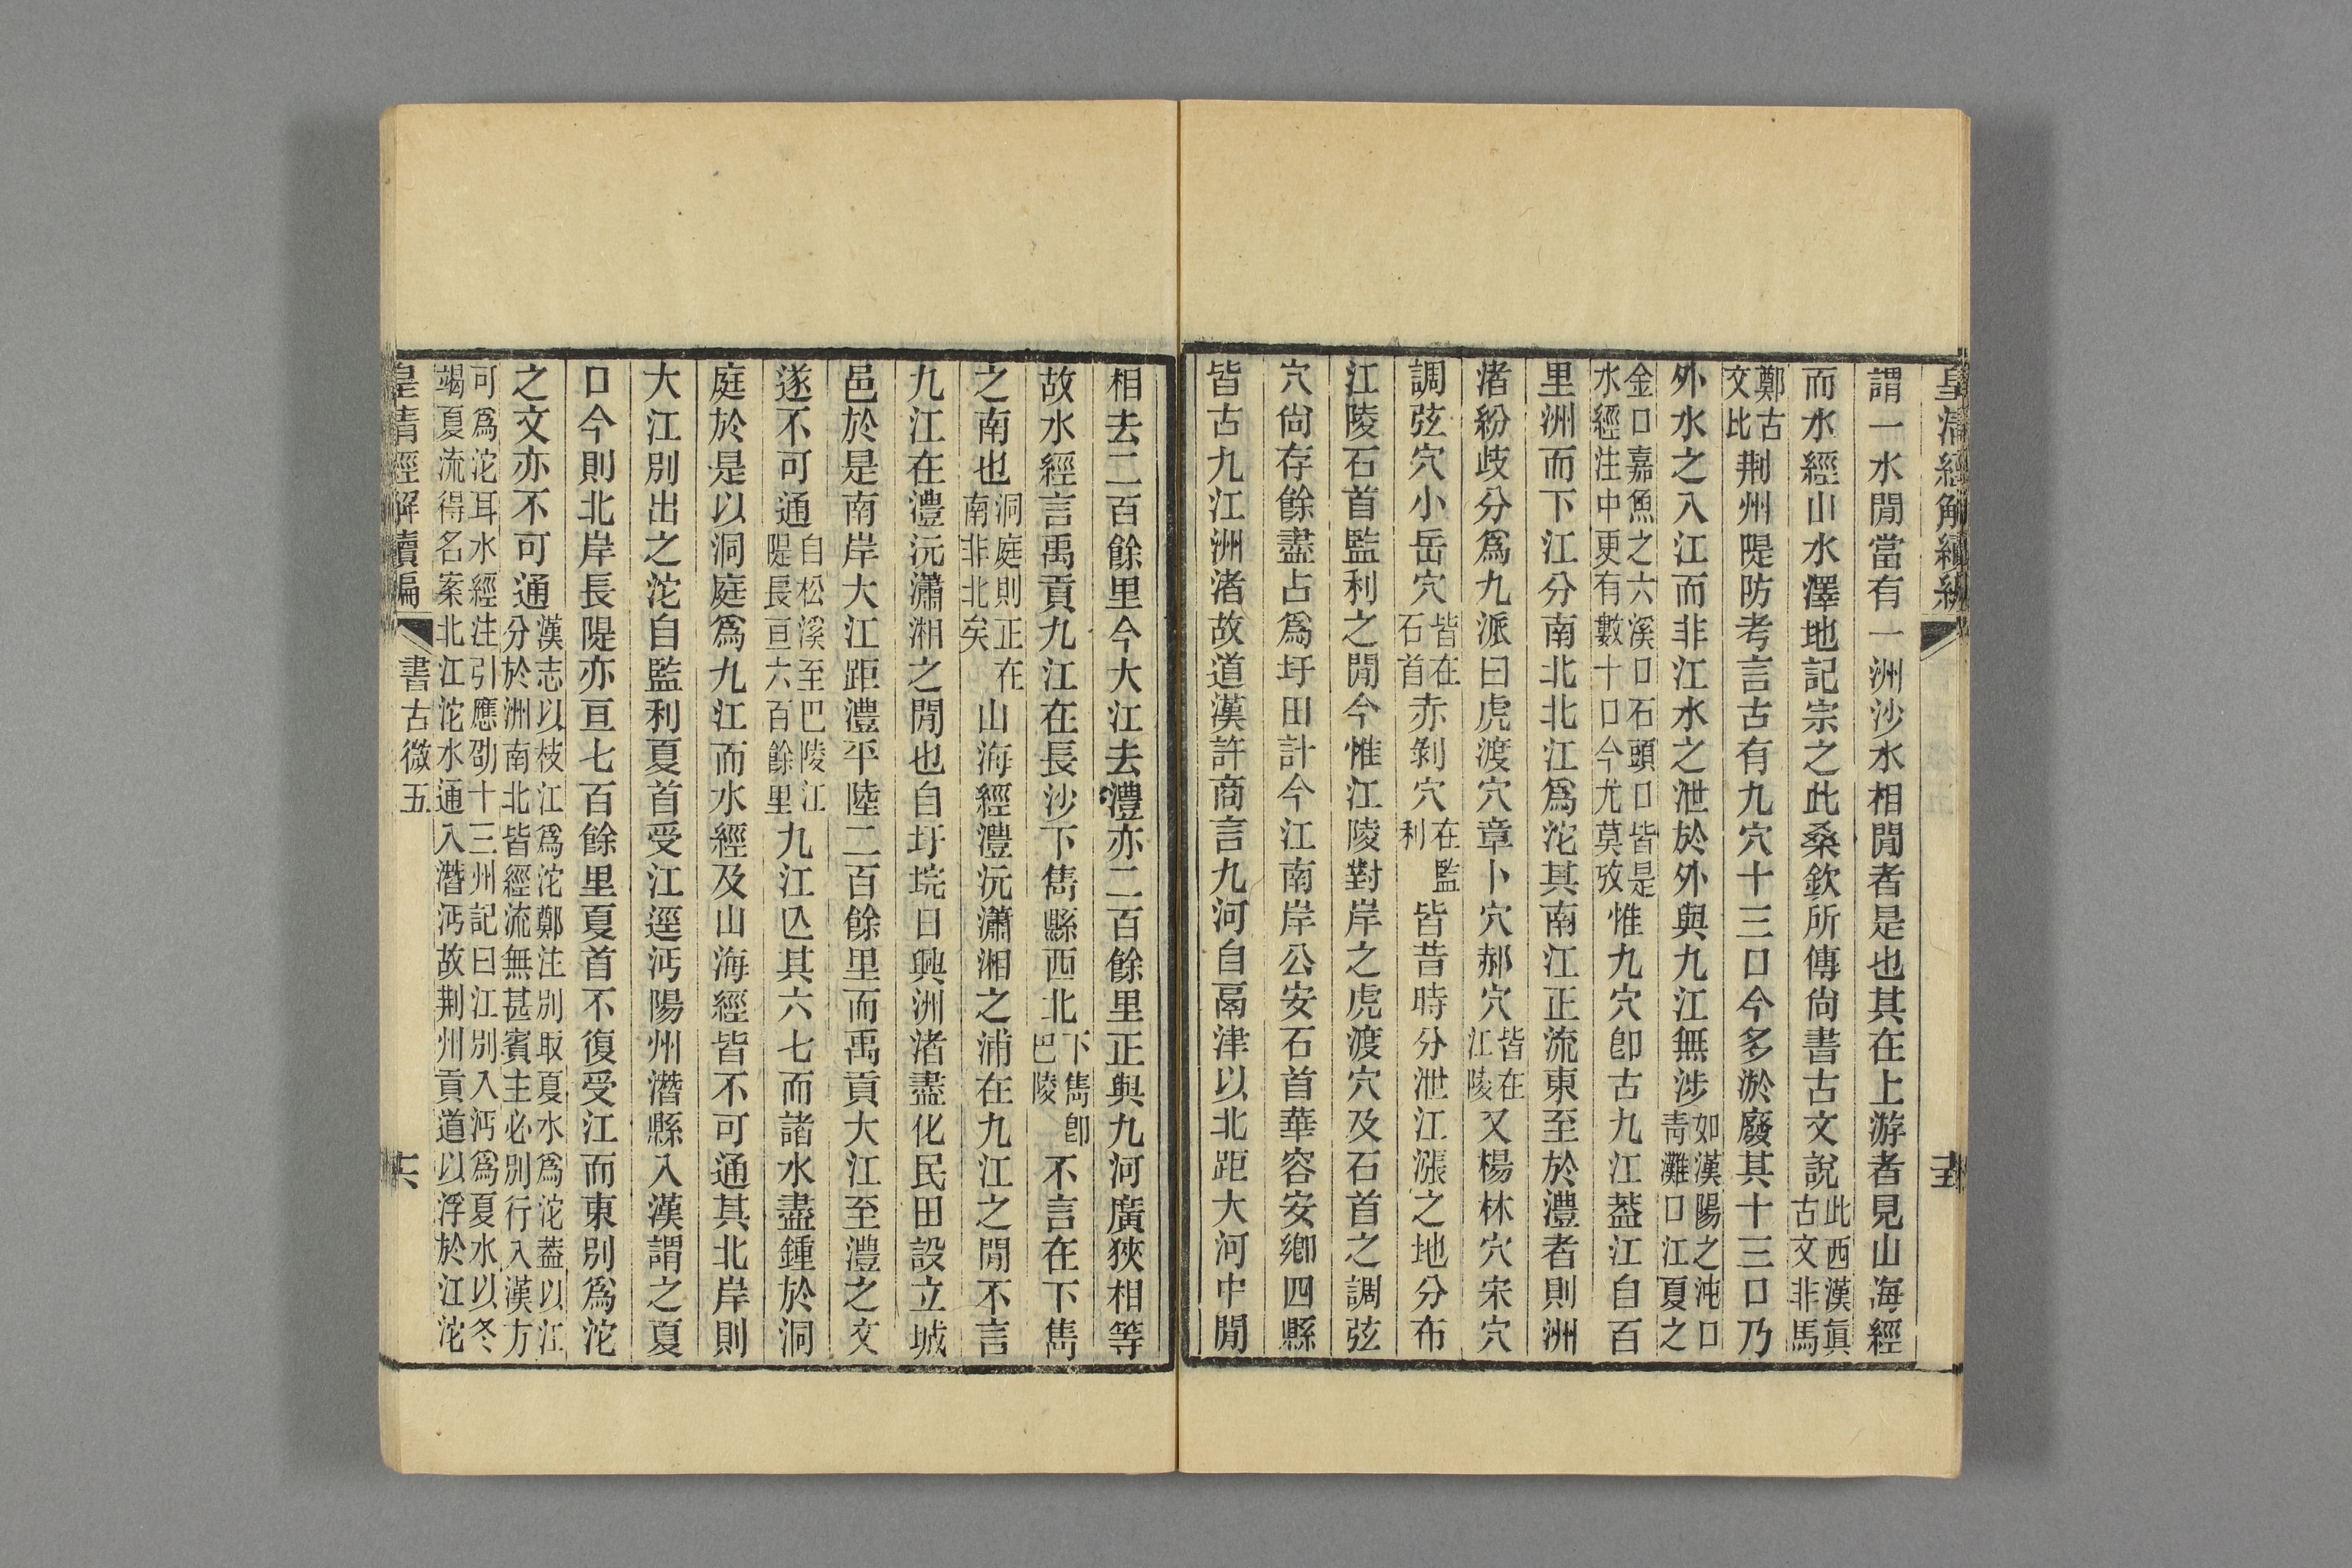 皇淸經解續編
謂一水閒當有一洲沙水相閒者是也其在上游者見山海經
而水經山水澤地記宗之此桑欽所傳尙書古文說此西漢眞古文非馬
鄭古文比荆州隄防考言古有九穴十三口今多淤廢其十三口乃
外水之入江而非江水之泄於外與九江無涉如漢陽之沌口靑灘口江夏之
金口嘉魚之六溪口石頭口皆是水經注中更有數十口今尤莫攷惟九穴卽古九江葢江自百
里洲而下江分南北北江爲沱其南江正流東至於澧者則洲
渚紛歧分爲九派曰虎渡穴章卜穴郝穴皆在江陵又楊林穴宋穴
調弦穴小岳穴皆在石首赤剝穴在監利皆昔時分泄江漲之地分布
江陵石首監利之閒今惟江陵對岸之虎渡穴及石首之調弦
穴尙存餘盡占爲圩田計今江南岸公安石首華容安鄕四縣
皆古九江洲渚故道漢許商言九河自鬲津以北距大河中閒
相去二百餘里今大江去澧亦二百餘里正與九河廣狹相等
故水經言禹貢九江在長沙下雋縣西北下雋卽巴陵不言在下雋
之南也洞庭則正在南非北矣山海經澧沅瀟湘之浦在九江之閒不言
九江在澧沅瀟湘之閒也自圩垸日興洲渚盡化民田設立城
邑於是南岸大江距澧平陸二百餘里而禹貢大江至澧之文
遂不可通自松溪至巴陵江隄長亘六百餘里九江亾其六七而諸水盡鍾於洞
庭於是以洞庭爲九江而水經及山海經皆不可通其北岸則
大江別出之沱自監利夏首受江逕沔陽州潛縣入漢謂之夏
口今則北岸長隄亦亘七百餘里夏首不復受江而東別爲沱
之文亦不可通漢志以枝江爲沱鄭注別取夏水爲沱葢以江分於洲南北皆經流無甚賓主必別行入漢方
可爲沱耳水經注引應劭十三州記曰江別入沔爲夏水以冬竭夏流得名案北江沱水通入潛沔故荆州貢道以浮於江沱
皇淸經解續編
書古微五
六